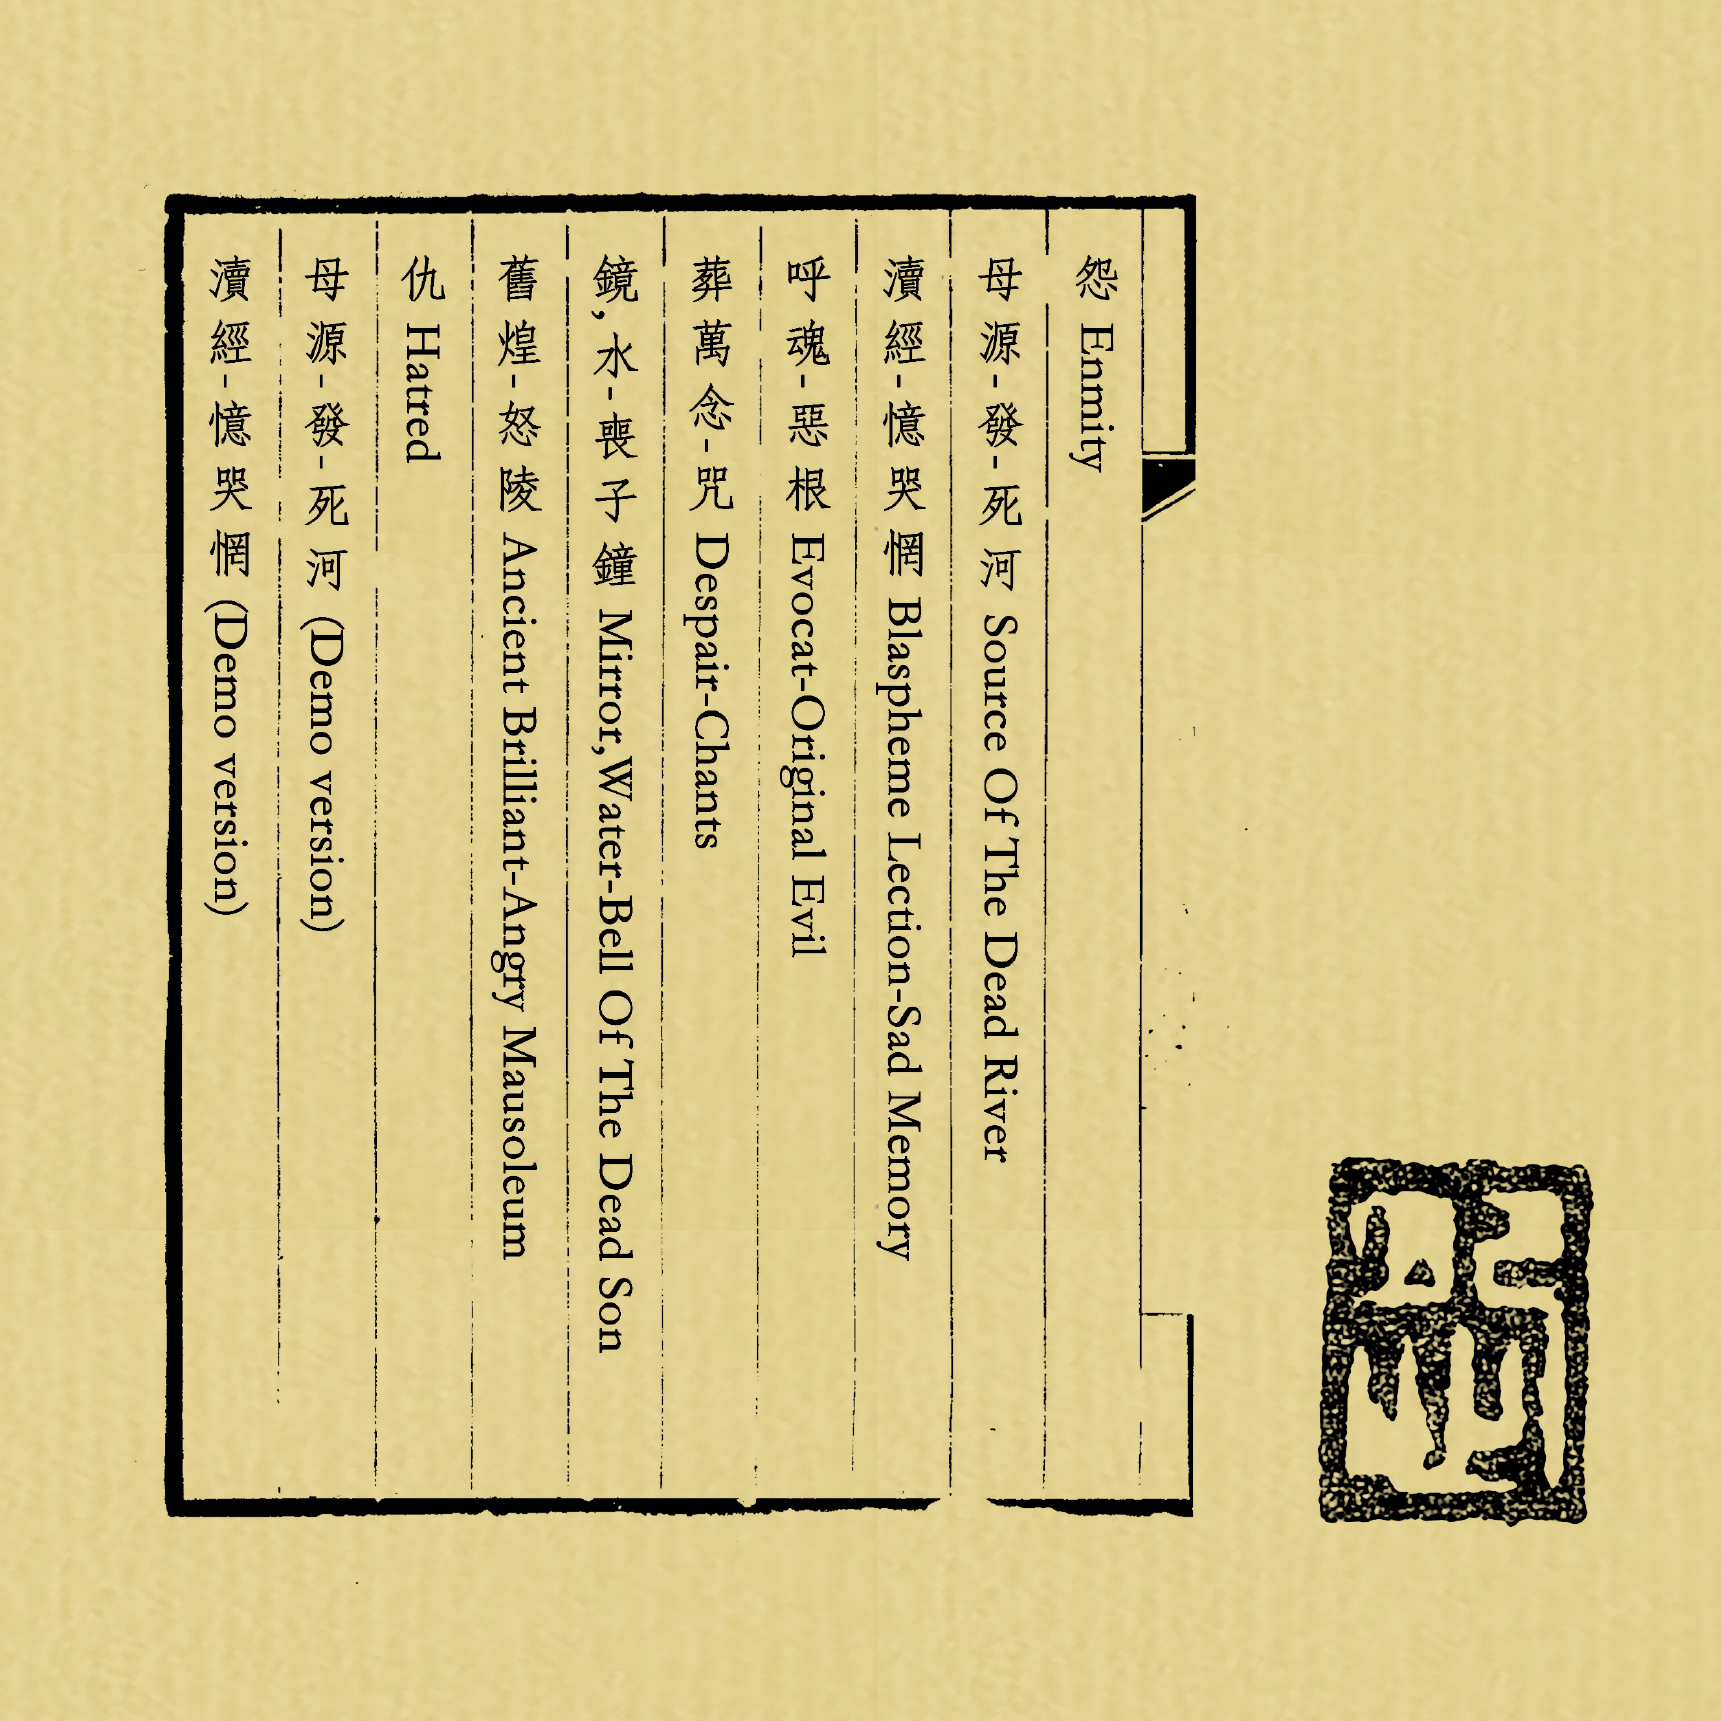 怨 Enmity
母源-發-死河 Source Of The Dead River
瀆經-憶哭惘 Blaspheme Lection-Sad Memory
呼魂-惡根 Evocat-Original Evil
葬萬念-咒 Despair-Chants
鏡,水-喪子鐘 Mirror,Water-Bell Of The Dead Son
舊煌-怒陵 Ancient Brilliant-Angry Mausoleum
仇 Hatred
母源-發-死河 (Demo version)
瀆經-憶哭惘 (Demo version)